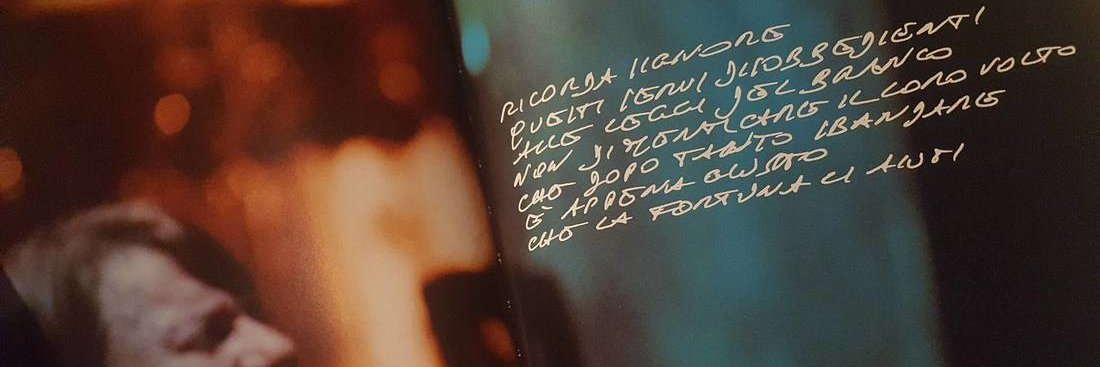 RICORDA SIGNORE
QUESTI SERVI DISOBBEDIENTI
ALLE LEGGI DEL BRANCO
NON DIMENTICARE IL LORO VOLTO
CHE DOPO TANTO SBANDARE
È APPENA GIUSTO
CHE LA FORTUNA LI AIUTI